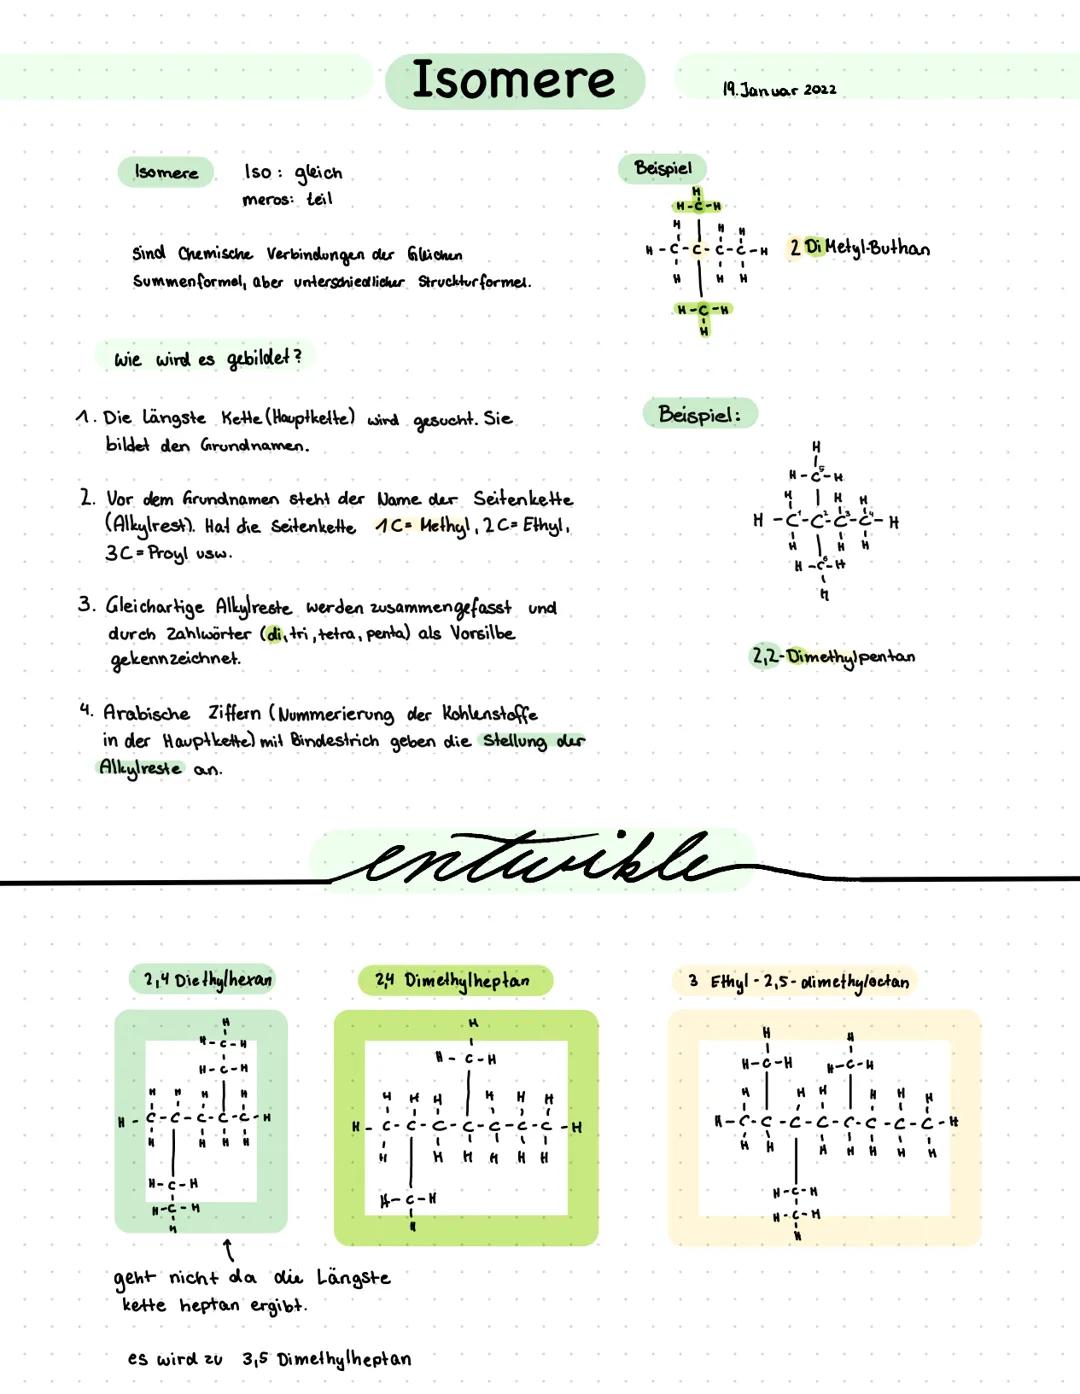 Isomere
19. Januar 2022
Isomere Iso: gleich
meros: teil
Sind Chemische Verbindungen der Gleichen
Summenformel, aber unterschiedlicher Struckturformel.
Beispiel
H
H-C-H
H H H
H-C-C-C-C-H
H H H
H-C-H
H
2 Di Metyl-Buthan
wie wird es gebildet?
1. Die Längste Kette (Hauptkette) wird gesucht. Sie
bildet den Grundnamen.
2. Vor dem Grundnamen steht der Name der Seitenkette
(Alkylrest). Hat die Seitenkette 1C= Methyl, 2C= Ethyl,
3C=Proyl usw.
3. Gleichartige Alkylreste werden zusammengefasst und
durch Zahlwörter (di, tri, tetra, penta) als Vorsilbe
gekennzeichnet.
4. Arabische Ziffern (Nummerierung der Kohlenstoffe
in der Hauptkette) mit Bindestrich geben die Stellung der
Alkylreste an.
Beispiel:
H
H-C⁵-H
H H H
H-C¹-C²-C³-C⁴-H
H H H
H-C⁶-H
H
2,2-Dimethylpentan
entwikle
2,4 Diethylhexan
H
H-C-H
H-C-H
H H H H
H-C-C-C-C-C-H
H H H H
H-C-H
H-C-H
H
geht nicht da die Längste
kette heptan ergibt.
es wird zu 3,5 Dimethylheptan
2,4 Dimethylheptan
H
H-C-H
H H H H H H
H-C-C-C-C-C-C-C-H
H H H H H H
H-C-H
H
3 Ethyl-2,5-dimethyloctan
H H
H-C-H H-C-H
H H H H H H
H-C-C-C-C-C-C-C-C-H
H H H H H H H
H-C-H
H-C-H
H